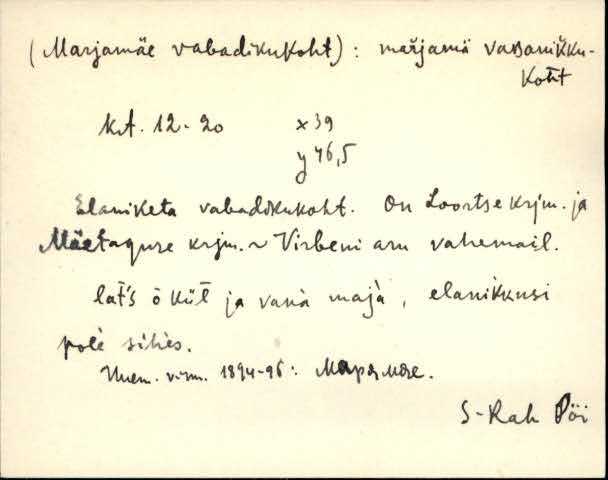 (Marjamäe vabadikukoht) : mařjamä vaʙanik̆ku-
kot̆t
k.t. 12-20 x 39
y 46,5
Elaniketa vabadikukoht. On Loortse krjm. ja
Mäetaguse krjm. ~ Virbeni aru vahemail.
lat̆'s ō kül̆ ja vanà majà, elanikkusi
polè sihès.
1894-96: Марямяе.
S-Rak Pöi